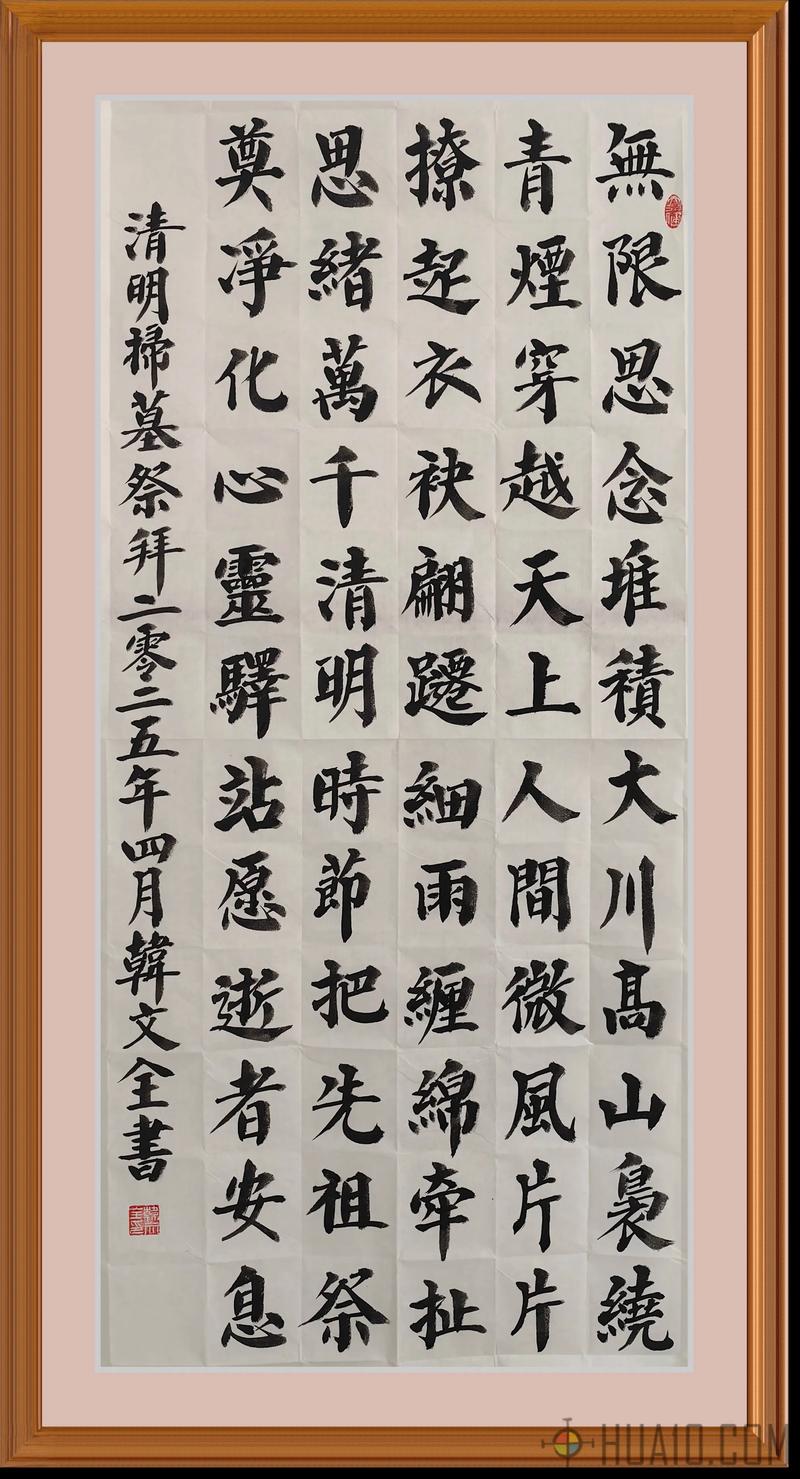 無限思念堆積大川髙山裊繞
青煙穿越天上人間微風片片
撩起衣袂翩躚細雨纏綿牽扯
思緒萬千清明時節把先祖祭
奠凈化心靈驛站愿逝者安息
清明掃墓祭拜二零二五年四月韓文全書
HUA10.COM